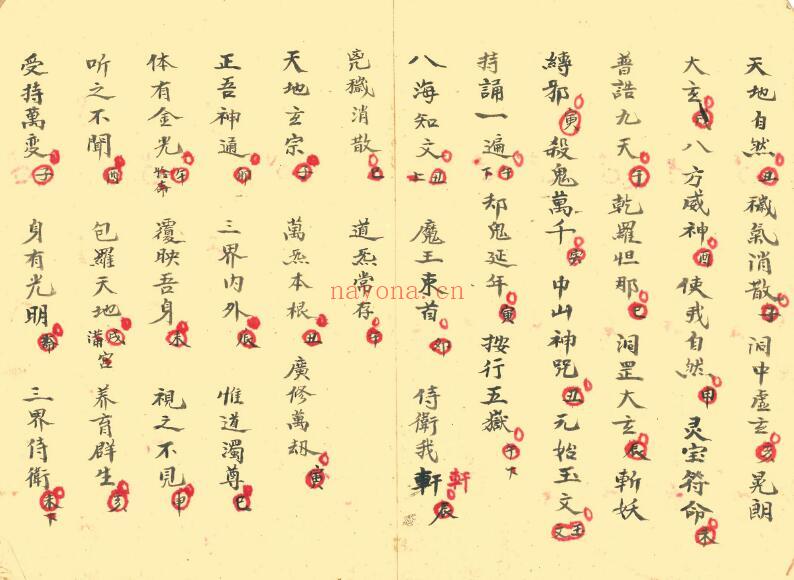 天地自然丑穢氣消散子洞中虛玄亥晃朗
大玄戌八方威神酉使我自然甲灵宝符命未
普誥九天午乾羅怛那巳洞罡大玄辰斬妖
縛邪寅殺鬼萬千中山神咒丑元始玉文
持誦一遍午下却鬼延年寅按行五嶽午下
八海知文丑上魔王束首卯侍衛我軒軒辰
兇穢消散巳道炁常存午
天地玄宗子萬炁本根丑廣修萬劫寅
正吾神通卯三界内外辰惟道濁尊巳
体有金光午覆映吾身未視之不見申
听之不聞酉包羅天地戌滿宫养育群生亥
受持萬变子身有光明三界侍衛未下
navona.cn